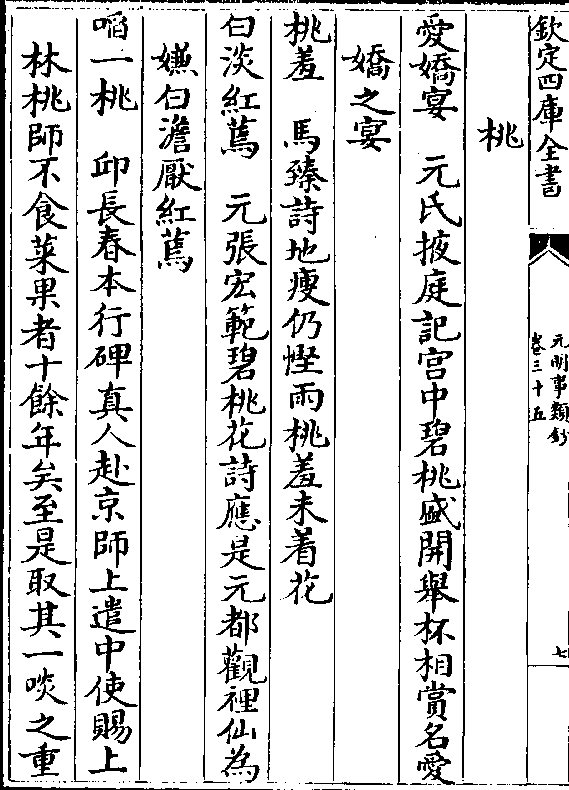 欽定四庫全書
元明事類鈔
卷三十五
七
桃
愛嬌宴　元氏掖庭記宫中碧桃盛開舉杯相賞名愛
嬌之宴
桃羞　馬臻詩地瘦仍慳雨桃羞未着花
白淡紅蔫　元張宏範碧桃花詩應是元都觀裡仙為
嫌白澹厭紅蔫
啗一桃　邱長春本行碑真人赴京師上遣中使賜上
林桃師不食菜果者十餘年矣至是取其一啖之重